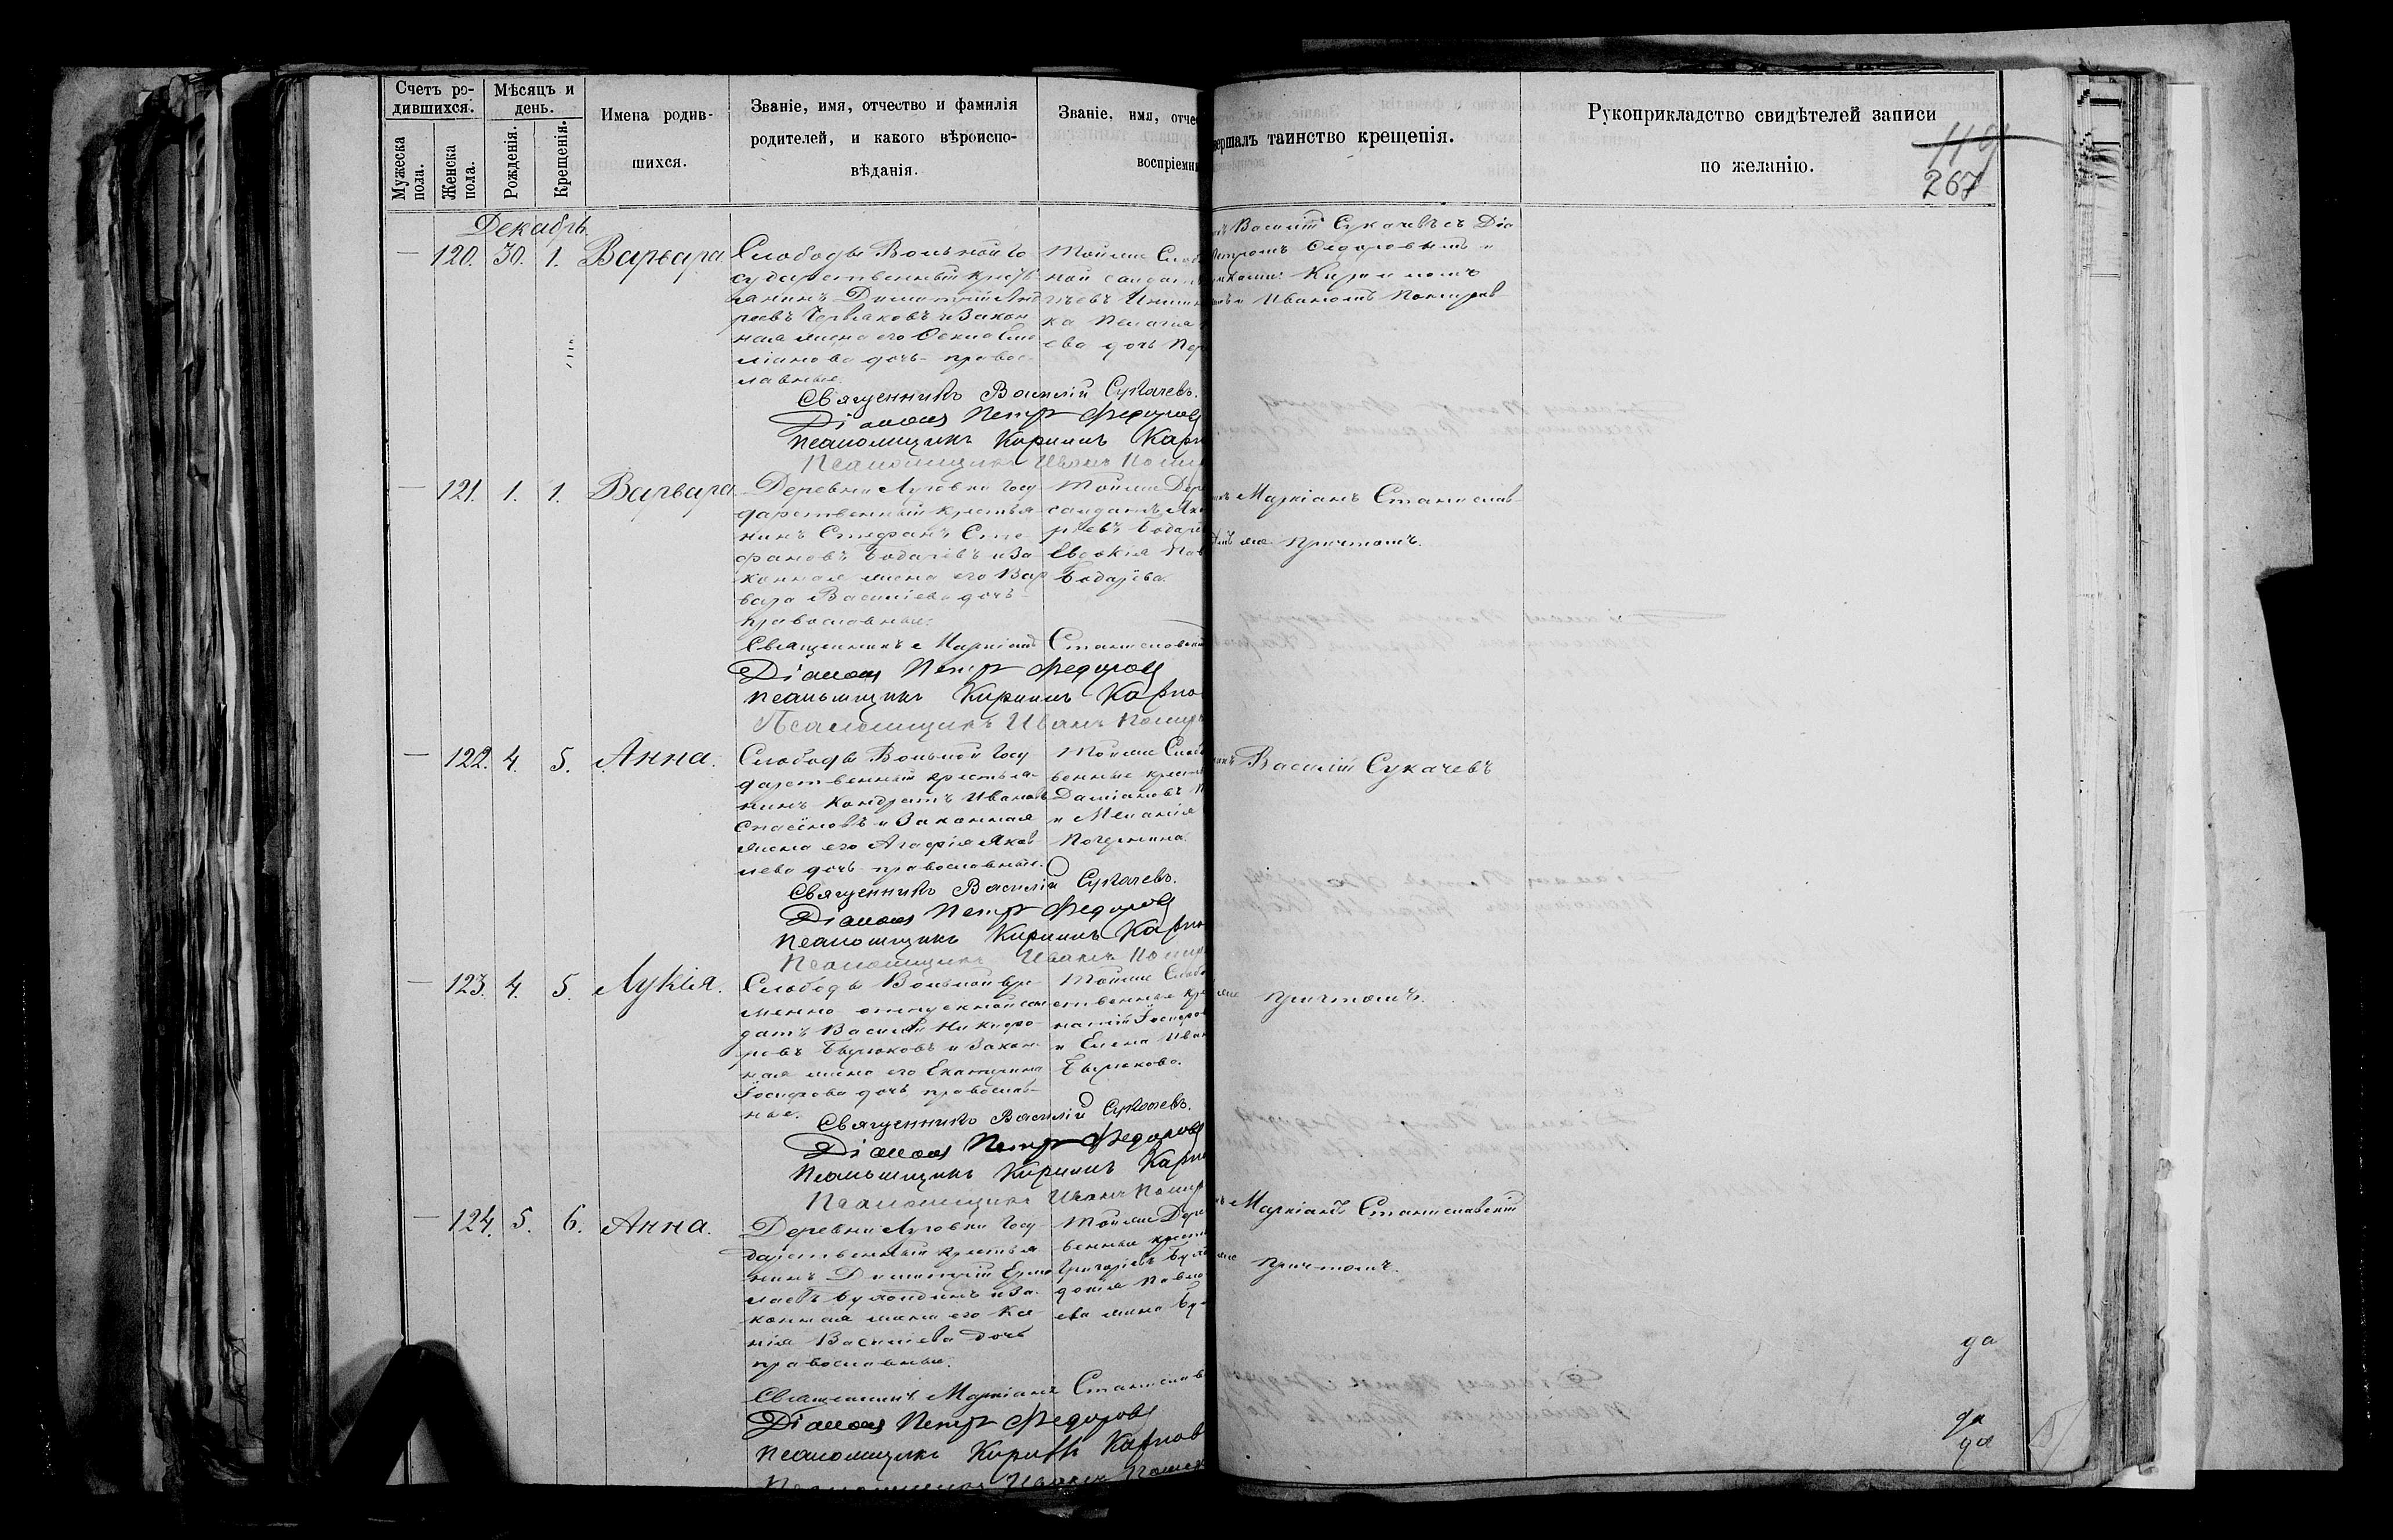 Счетъ ро-
дившихся.
Мужеска
пола.
Женска
пола.
Мѣсяцъ и
день.
Рожденія.
Крещенія.
Имена родив-
шихся.
Званіе, имя, отчество и фамилія
родителей, и какого вѣроиспо-
вѣданія.
Званіе, имя, отчес
воспріемни
вершалъ таинство крещенія.
Рукоприкладство свидѣтелей записи
по желанію.
119
267
Декабрь
— 120. 30. 1. Варвара
Слободы Вольной Го
сударственный крест
янинъ Димитрій Анд
реевъ и Закон
ная жена его
дочь право-
славные.
Тойже Слоб
ной солдат
ка Пелагія
ева дочь
Василій Сукачевъ съ Діа
Петромъ Ѳедоровымъ и
Кирилломъ
и Иваномъ
Священникъ Василій Сукачевъ.
Діаконъ Петръ Федоровъ
Псаломщикъ Кириллъ Карп
Псаломщикъ Иванъ
— 121. 1. 1. Варвара
Деревни Луговки Госу
дарственный крестья
нинъ Стефанъ Сте
фановъ и За
конная жена его Вар
вара Васильева дочь
православные.
Тойже Дере
солдатъ
Евдокія Пав
Маркіанъ Станислав
же Причтомъ.
Священникъ Маркіанъ Станиславскій
Діаконъ Петръ Федоровъ
Псаломщикъ Кириллъ Карпо
Псаломщикъ Иванъ
— 122. 4. 5. Анна.
Слободы Вольной Госу
дарственный крестья
нинъ Кондратъ Ивановъ
и Законная
жена его Агафія Яков
лева дочь православные.
Тойже Слоб
венные крест
Даміановъ
и Меланія
Василій Сукачевъ
Священникъ Василій Сукачевъ.
Діаконъ Петръ Федоровъ
Псаломщикъ Кириллъ Карпо
Псаломщикъ Иванъ
— 123. 4. 5. Лукія.
Слободы Вольной вре
менно отпускной сол
датъ Василій Никифо
ровъ Бирюковъ и Закон
ная жена его Екатерина
Іосифова дочь православ-
ные.
Тойже Слобо
ственные кре
и Елена Иван
Бирюкова.
же Причтомъ.
Священникъ Василій Сукачевъ.
Діаконъ Петръ Федоровъ
Псаломщикъ Кириллъ Карпо
Псаломщикъ Иванъ
— 124. 5. 6. Анна.
Деревни Луговки Госу-
дарственный крестья
нинъ Димитрій Ермо
лаевъ и За-
конная жена его Ксе-
нія Васильева дочь
православные.
Тойже Дере
венные крест
Григорьевъ
Маркіанъ Станиславскій
же Причтомъ.
Священникъ Маркіанъ Станиславс
Діаконъ Петръ Федоровъ
Псаломщикъ Кириллъ Карпов
Псаломщикъ Иванъ
да
да
да